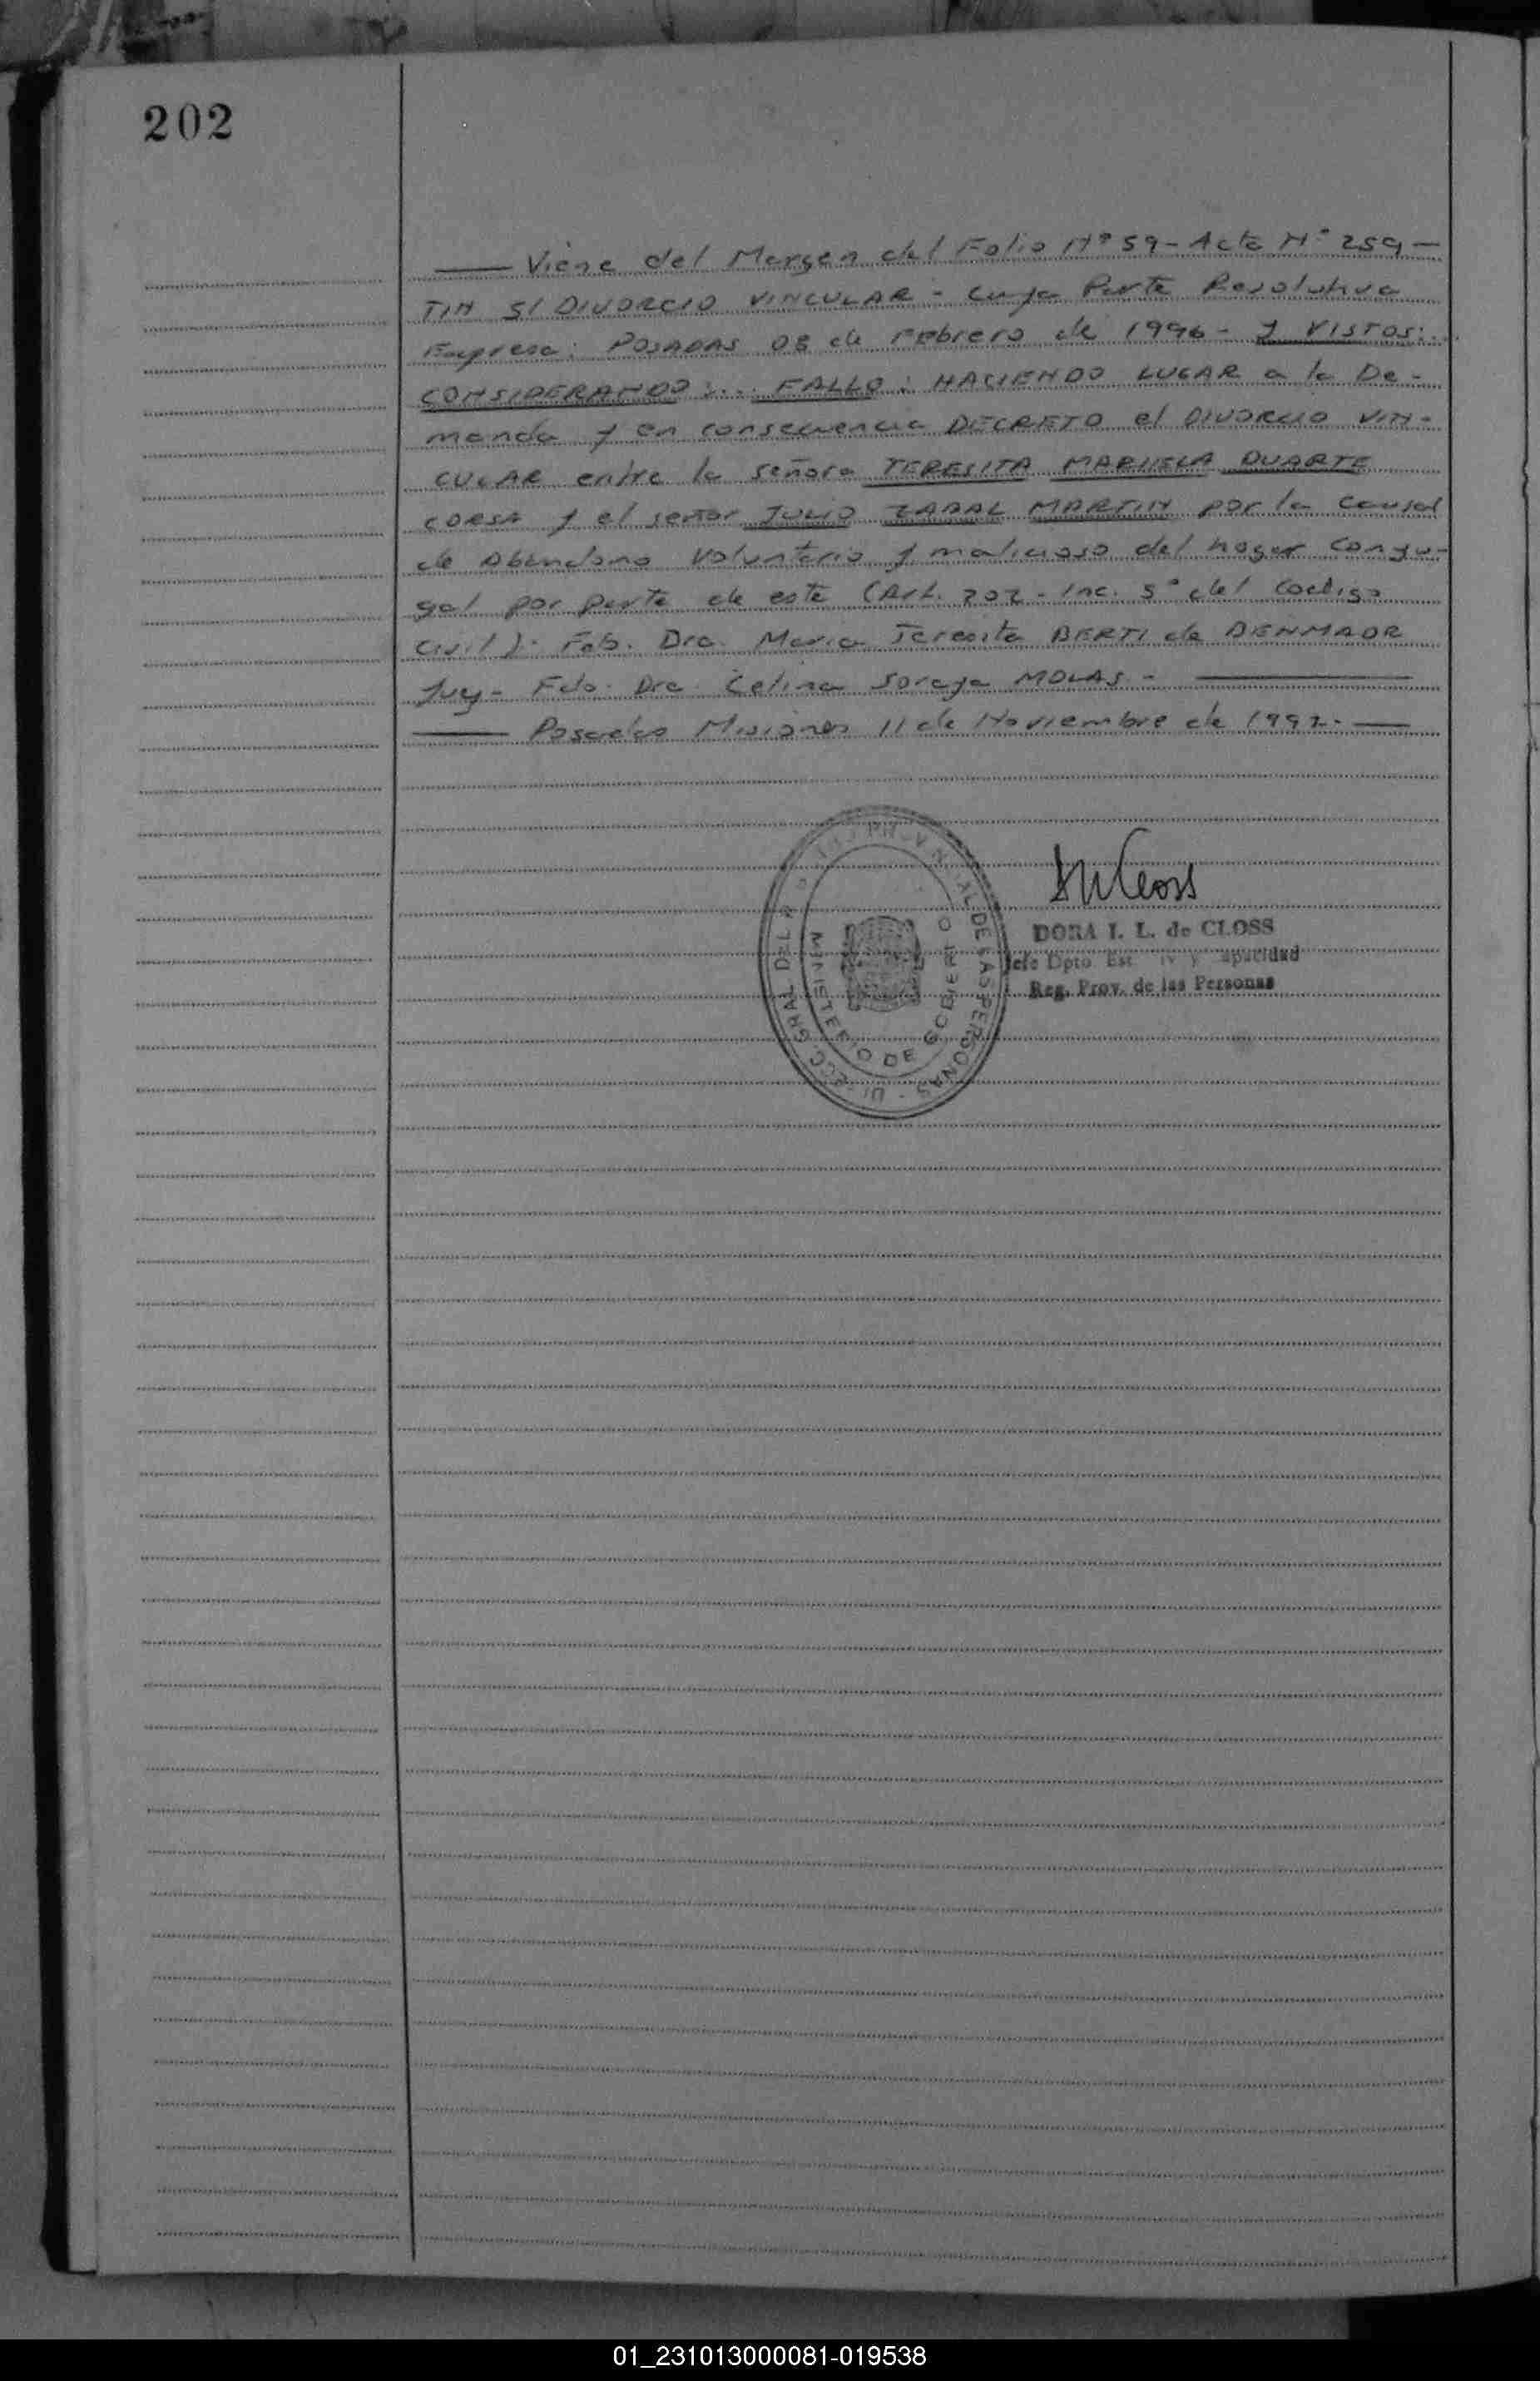 202
Viene del Margen del Folio Nº 59 - Acta Nº 259 -
TIN S/ DIVORCIO VINCULAR - Cuya Parte Resolutiva
Expresa: POSADAS 08 de Febrero de 1996 - Y VISTOS:..
CONSIDERANDO:... FALLO: HACIENDO LUGAR a la De-
manda y en consecuencia DECRETO el DIVORCIO VIN-
CULAR entre la señora TERESITA MARIELA DUARTE
CORSA y el señor JULIO ZABAL MARTIN por la causal
de Abandono Voluntario y malicioso del hogar Conyu-
gal por parte de este (Art. 202 - Inc. 5° del Codigo
Civil). Fdo. Dra. Maria Teresita BERTI de DENMADR
Juez - Fdo. Dra. Celina Soraya MOLAS. -
Posadas Misiones 11 de Noviembre de 1997. -
DORA I. L. de CLOSS
Jefe Dpto. Est.
Reg. Prov. de las Personas
DE LAS PERSONAS
MINISTERIO DE GOBIERNO
01_231013000081-019538